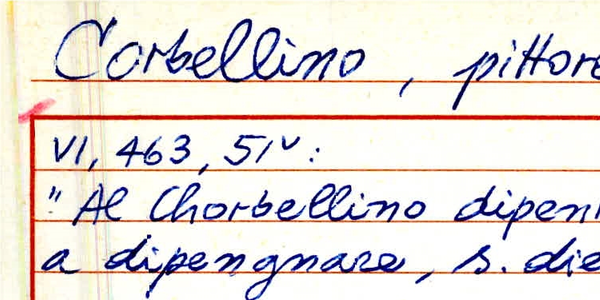 Corbellino, pittore
VI, 463, 51v:
" Al Chorbellino dipen
a dipengnare, s. die